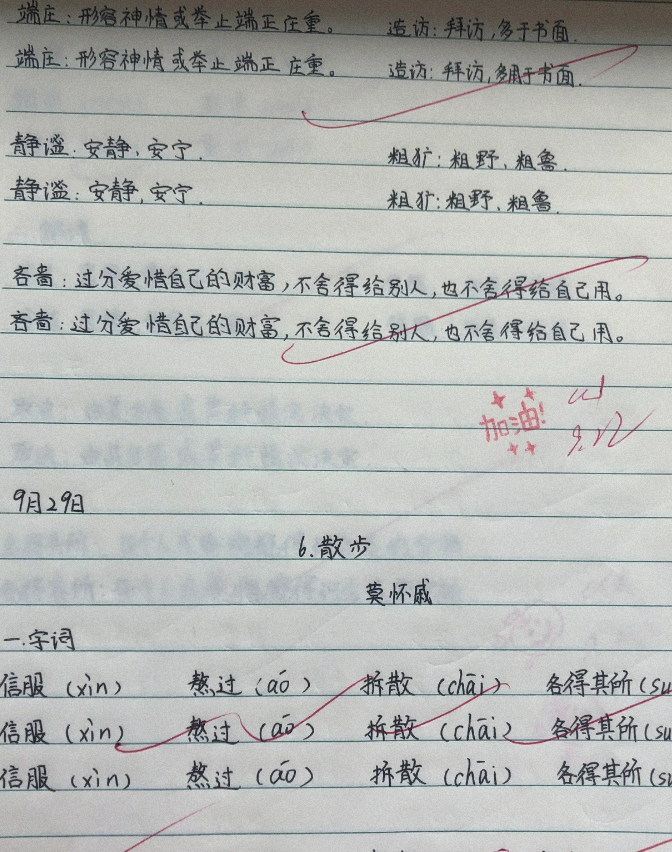 端庄：形容神情或举止端正庄重。 造访：拜访，多于书面.
端庄：形容神情或举止端正庄重。 造访：拜访，多用于书面.
静谧：安静、安宁. 粗犷：粗野、粗鲁.
静谧：安静、安宁. 粗犷：粗野、粗鲁.
吝啬：过分爱惜自己的财富，不舍得给别人，也不舍得给自己用。
吝啬：过分爱惜自己的财富，不舍得给别人，也不舍得给自己用。
加油！
9月29日
6.散步
莫怀戚
一.字词
信服（xìn） 熬过（áo） 拆散（chāi） 各得其所（su
信服（xìn） 熬过（áo） 拆散（chāi） 各得其所（su
信服（xìn） 熬过（áo） 拆散（chāi） 各得其所（su